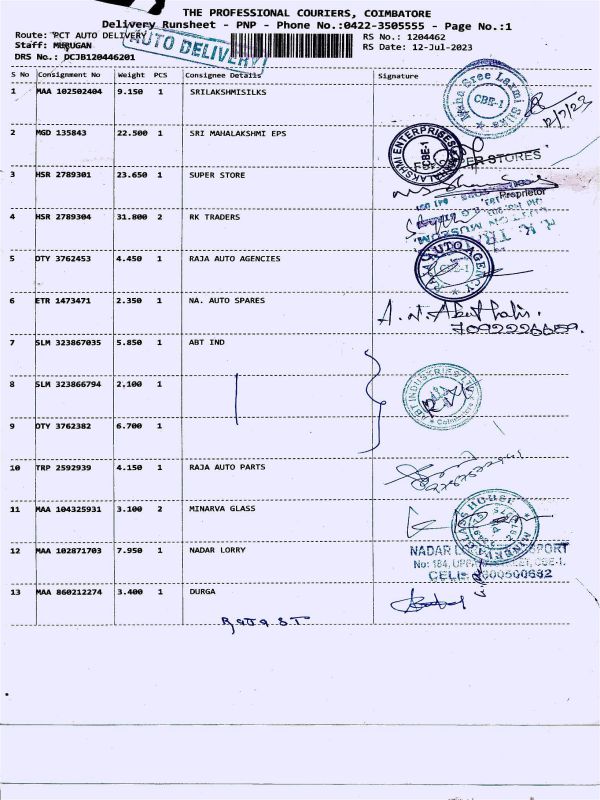 THE PROFESSIONAL COURIERS, COIMBATORE
Delivery Runsheet - PNP - Phone No.:0422-3505555 - Page No.:1
Route: PCT AUTO DELIVERY
AUTO DELIVERY
RS No.: 1204462
Staff: MURUGAN
RS Date: 12-Jul-2023
DRS No.: DCJB120446201
S No Consignment No Weight PCS Consignee Details Signature
1 MAA 102502404 9.150 1 SRILAKSHMISILKS
Maha Sree Laxmi Silks CBE-1
12/7/23
2 MGD 135843 22.500 1 SRI MAHALAKSHMI EPS
MAHALAKSHMI ENTERPRISES CBE-1
For SUPER STORES
3 HSR 2789301 23.650 1 SUPER STORE
Proprietor
4 HSR 2789304 31.800 2 RK TRADERS
R. K. TR
5 OTY 3762453 4.450 1 RAJA AUTO AGENCIES
RAJA AUTO AGENCY CBE-1
6 ETR 1473471 2.350 1 NA. AUTO SPARES
7 SLM 323867035 5.850 1 ABT IND
8 SLM 323866794 2,100 1
ABT INDUSTRIES LTD Coimbatore
9 OTY 3762382 6.700 1
10 TRP 2592939 4.150 1 RAJA AUTO PARTS
11 MAA 104325931 3.100 2 MINARVA GLASS
MINERVA GLASS HOUSE
12 MAA 102871703 7.950 1 NADAR LORRY
NADAR
No: 184, UPP
CELL:
13 MAA 860212274 3.400 1 DURGA